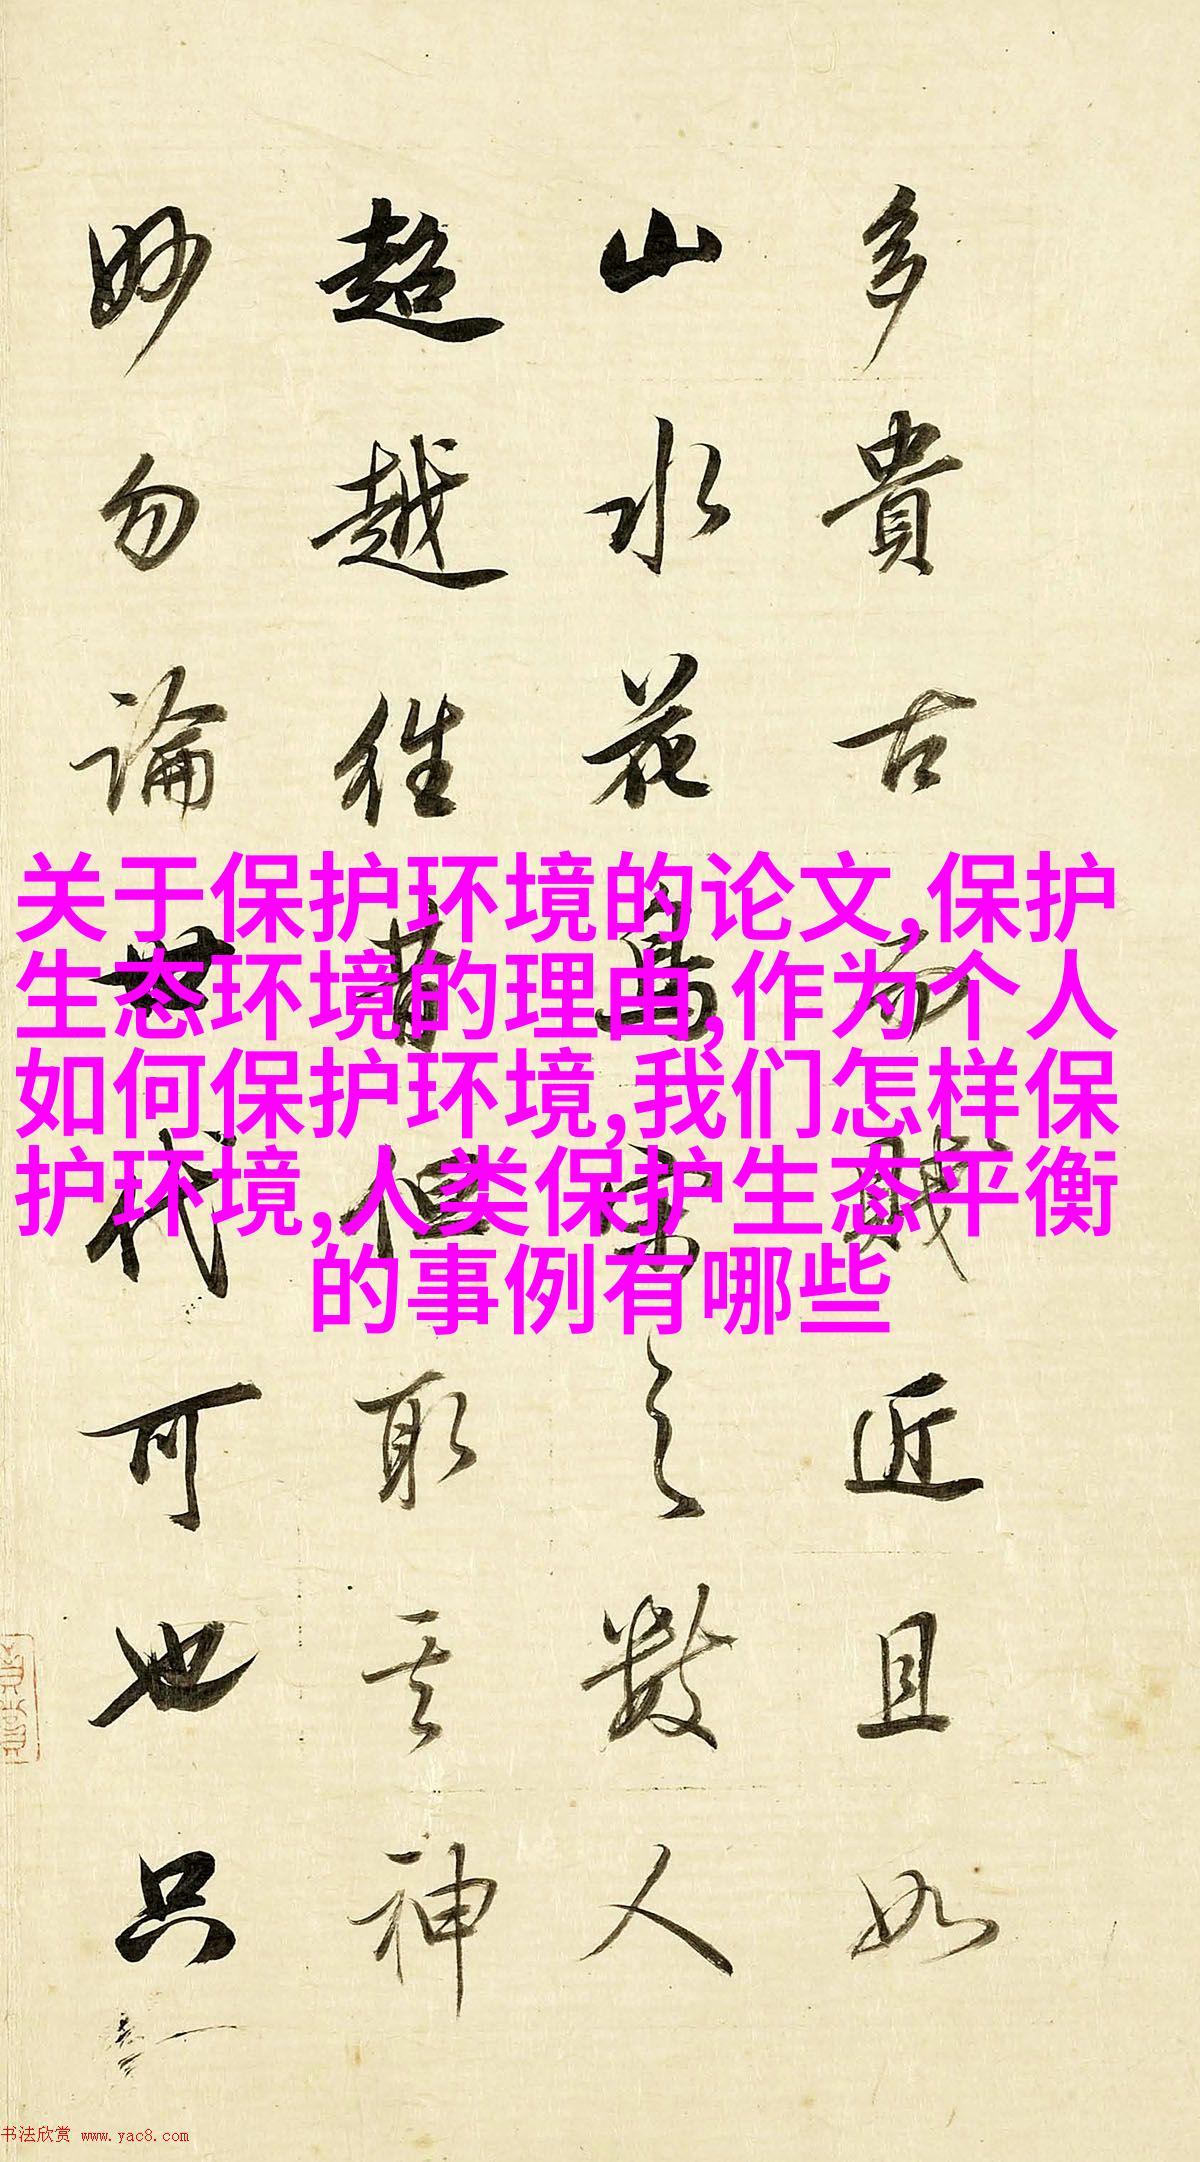 多貴古而賤近且如
山水花鳥宋之數人
超越往昔但取其神
妙勿論世代可也只
关于保护环境的论文,保护
生态环境的理由,作为个人
如何保护环境,我们怎样保
护环境,人类保护生态平衡
的事例有哪些
书法欣赏 www.yac8.com